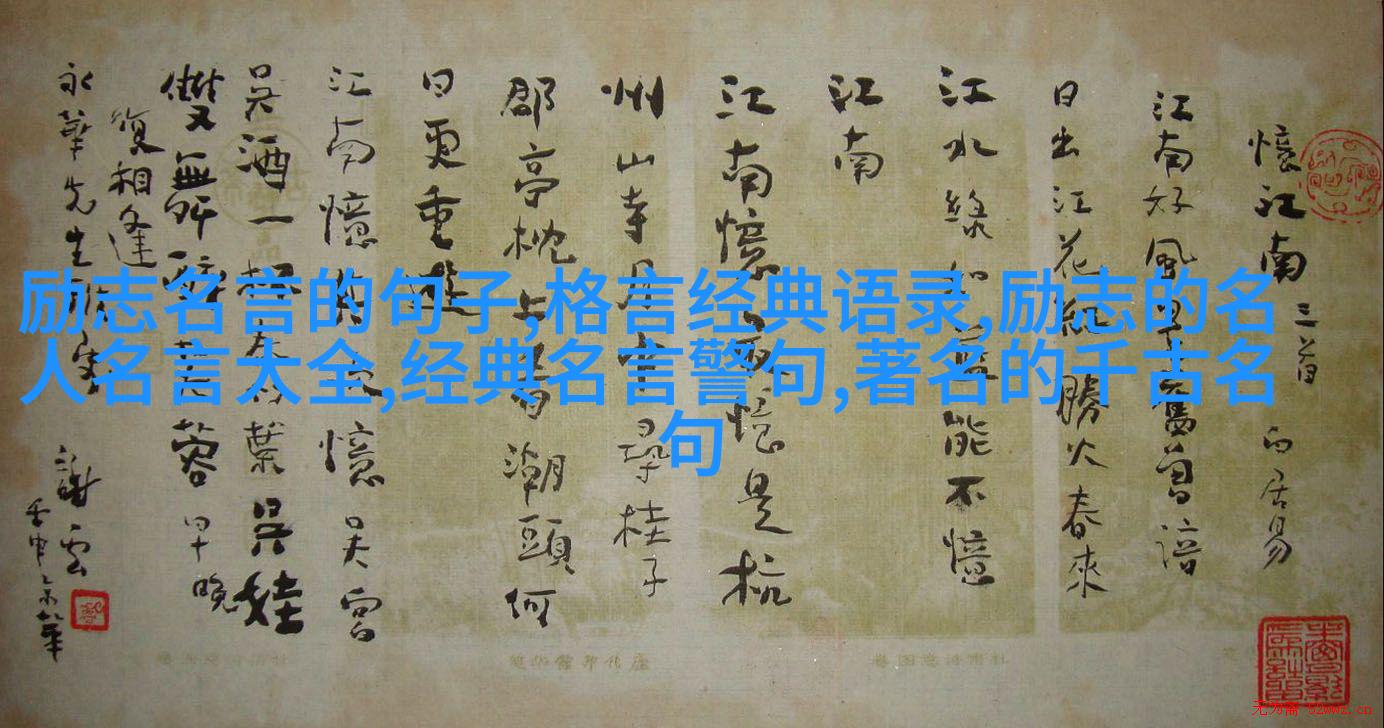 励志名言的句子,格言经典语录,励志的名
人名言大全,经典名言警句,著名的千古名
句
憶江南 三首 白居易
江南好風景舊曾諳
日出江花紅勝火春來
江水綠如藍能不憶
江南
江南憶最憶是杭
州山寺月中尋桂子
郡亭枕上看潮頭何
日更重遊
江南憶其次憶吳宮
吳酒一杯春竹葉吳娃
雙舞醉芙蓉早晚
復相逢
永華先生
謝雲
壬申
无为斋 52wwz.cn